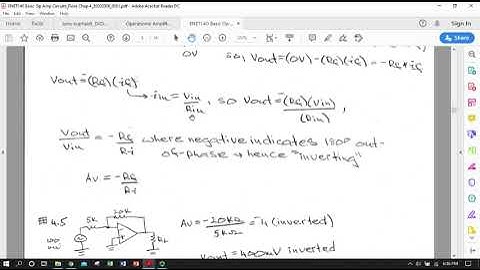 ENET140 Basic Op Amp Circuits_Floyd Chap 4_20200306_0001.pdf - Adobe Acrobat Reader DC
File Edit View Window Help
Home Tools
0V so, Vout=(0V)-(Rf)(if)=-Rf*if
Vout=-(Rf)(if)
iin=Vin/Rin, so Vout=-(Rf)(Vin)/(Rin),
Vout/Vin = -Rf/Ri where negative indicates 180° out-
of-phase → hence "inverting"
Av = -Rf/Ri
#4.5 5K 20K Av=-20kΩ/5kΩ=-4 (inverted)
100mV RL
Vout=400mV inverted